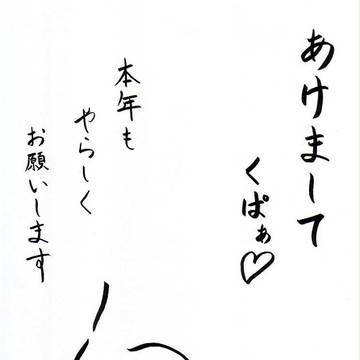 あけまして
くぱぁ♡
本年も
やらしく
お願いします